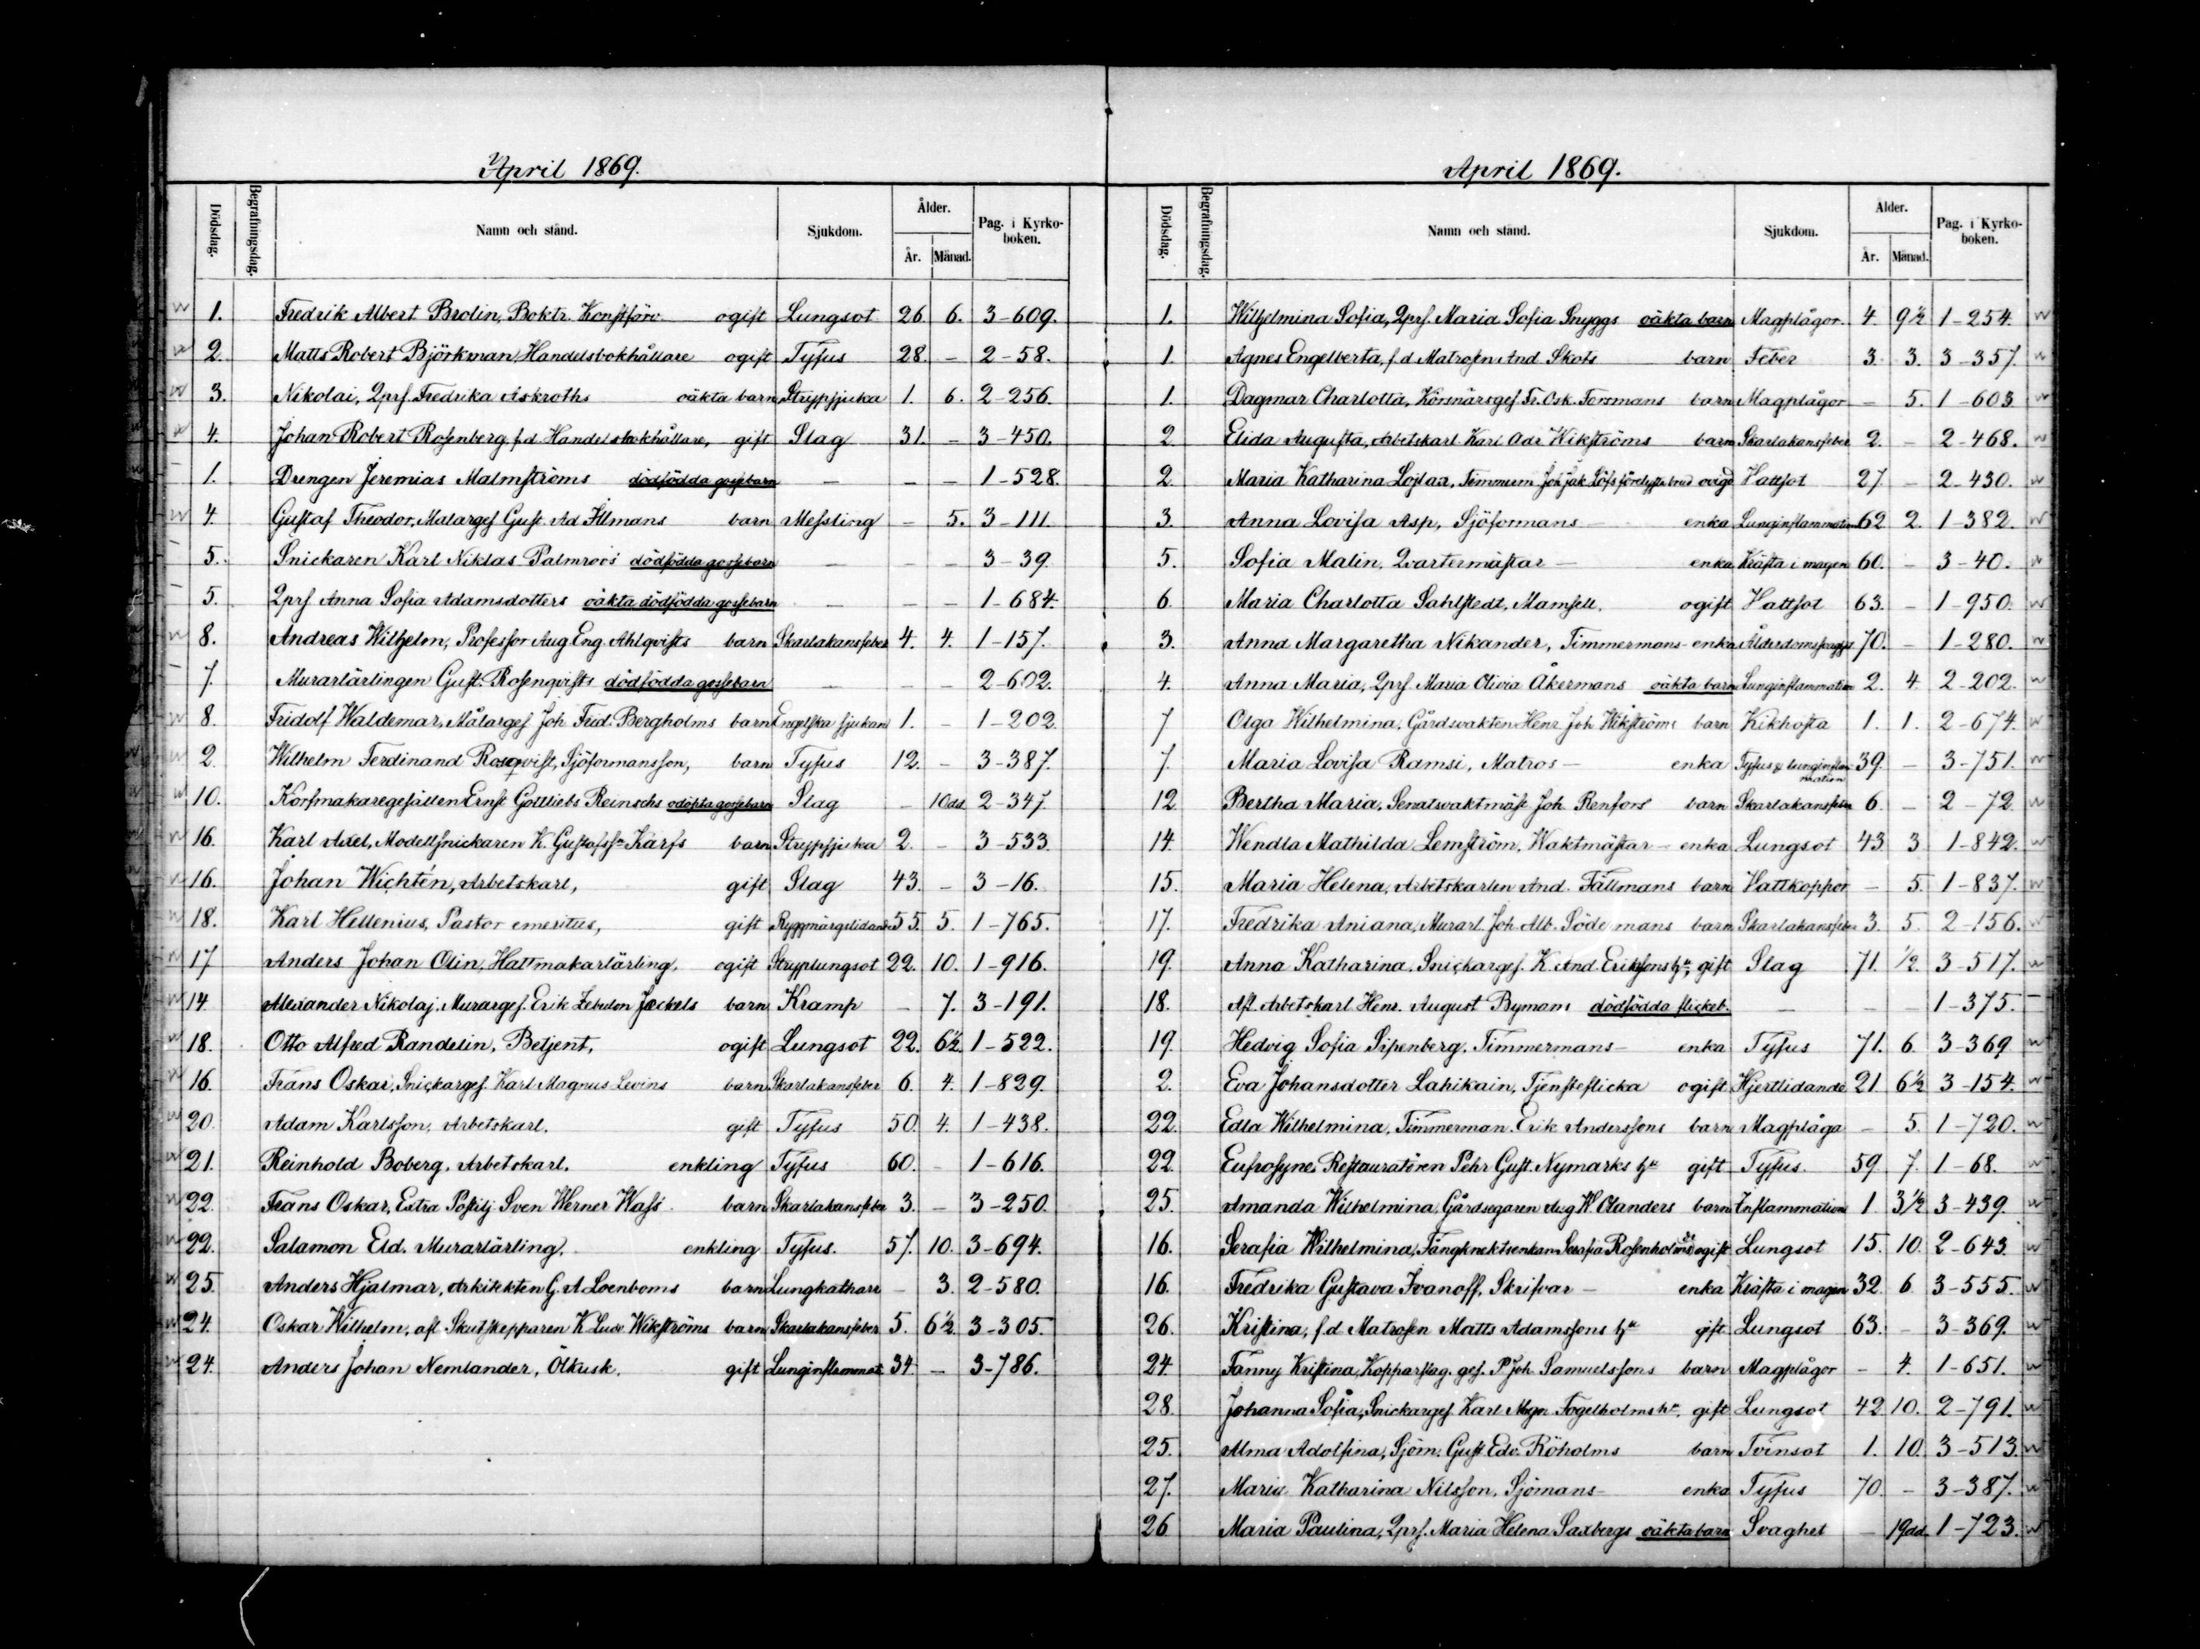 April 1869.
Dödsdag. Begrafningsdag. Namn och stånd. Sjukdom. Ålder. År. Månad. Pag. i Kyrkoboken.
1. Fredrik Albert Brolin, Boktr. Konstförv. ogift Lungsot 26 6. 3-609.
2. Matts Robert Björkman, Handelsbokhållare ogift Tyfus 28. - 2-58.
3. Nikolai, Qprs. Fredrika Askroths oäkta barn Strypsjuka 1. 6. 2-256.
4. Johan Robert Rosenberg, f.d. Handelsbokhållare, gift Slag 31. - 3-450.
1. Drengen Jeremias Malmströms dödfödda gossebarn - - - 1-528.
4. Gustaf Theodor, Malarges Gust. Ad. Illmans barn Messling - 5. 3-111
5. Snickaren Karl Niklas Palmroos dödfödda gossebarn - - - 3-39.
5. Qprs Anna Sofia Adamsdotters oäkta dödfödda gossebarn - - - 1-684.
8. Andreas Wilhelm, Professor Aug. Eng. Ahlqvists barn Skarlakansfeber 4. 4. 1-157.
7. Murarlärlingen Gust. Rosenqvists dödfödda gossebarn - - - 2-602.
8. Fridolf Waldemar, Målarges Joh. Fred. Bergholms barn Engelska sjukan 1. - 1-202.
2. Wilhelm Ferdinand Rosqvist, Sjöformansson, barn Tyfus 12. - 3-387.
10. Korfmakaregesällen Ernst Gottliebs Reinschs odöpta gossebarn Slag - 10dd. 2-347
16. Karl Axel, Modellsnickaren K. Gustafss:n Karfs barn Strypsjuka 2. - 3-533.
16. Johan Wichtén, Arbetskarl, gift Slag 43. - 3-16.
18. Karl Hellenius, Pastor emeritus, gift Ryggmärgslidande 55. 5. 1-765.
17 Anders Johan Olin, Hattmakarlärling, ogift Stryplungsot 22. 10. 1-916.
14. Alexander Nikolaj, Murarges. Erik Zebulon Jackels barn Kramp - 7. 3-191.
18. Otto Alfred Randelin, Betjent, ogift Lungsot 22. 6½ 1-522.
16. Frans Oskar, Snickarges. Karl Magnus Levins barn Skarlakansfeber 6. 4. 1-829.
20. Adam Karlsson, Arbetskarl. gift Tyfus 50. 4. 1-438.
21. Reinhold Boberg, Arbetskarl. enkling Tyfus 60. - 1-616.
22. Frans Oskar, Extra Postilj. Sven Werner Wass barn Skarlakansfeber 3. - 3-250.
22. Salamon Eld. Murarlärling, enkling Tyfus. 57. 10. 3-694.
25. Anders Hjalmar, Arkitekten G. A. Loenboms barn Lungkatharr - 3. 2-580.
24. Oskar Wilhelm, afl. Skutskepparen K. Ludv. Wikströms barn Skarlakansfeber 5. 6½ 3-305.
24. Anders Johan Nemlander, Ölkusk. gift Lunginflammat. 34. - 3-786.
April 1869.
Dödsdag. Begrafningsdag. Namn och stånd. Sjukdom. Ålder. År. Månad. Pag. i Kyrkoboken.
1. Wilhelmina Sofia, Qprs. Maria Sofia Snyggs oäkta barn Magplågor. 4. 9½ 1-254.
1. Agnes Engelberta, f.d. Matrosen And. Skots barn Feber 3. 3. 3-357.
1. Dagmar Charlotta, Körsnärsges. Fr. Osk. Forsmans barn Magplågor - 5. 1-603
2. Elida Augusta, Arbetskarl. Karl Adr. Wikströms barn Skarlakansfeber 2. - 2-468.
2 Maria Katharina Lojlax, Timmerm. Joh. Jak. Löfs förelyste brud ovigd Hattsot 27. - 2-430.
3. Anna Lovisa Asp, Sjöformans- enka Lunginflammation 62 2. 1-382.
5. Sofia Malin, Qvartermästar- enka Kräfta i magen 60. - 3-40.
6. Maria Charlotta Sahlstedt, Mamsell. ogift Hattsot 63. - 1-950.
3. Anna Margaretha Nikander, Timmermans- enka 70. - 1-280.
4. Anna Maria, Qprs. Maria Olivia Åkermans oäkta barn Lunginflammation 2. 4 2-202.
7 Olga Wilhelmina, Gårdsvakten Henr. Joh. Wikströms barn Kikhosta 1. 1. 2-674.
7. Maria Lovisa Ramsi, Matros- enka Tyfus & lunginflammation 39. - 3-751.
12 Bertha Maria, Senatsvaktmäst. Joh. Renfors barn Skarlakansfeber 6. - 2-72.
14. Wendla Mathilda Lemström, Waktmästar- enka Lungsot 43. 3 1-842.
15. Maria Helena, Arbetskarlen And. Fällmans barn Vattkoppor - 5. 1-837.
17. Fredrika Aniana, Murarl. Joh. Alb. Södermans barn Skarlakansfeber 3. 5. 2-156.
19. Anna Katharina, Snickarges. K. And. Eriksons h:u gift Slag 71. ½ 3-517.
18. Afl. Arbetskarl. Henr. August Bymans dödfödda flickeb. - - - 1-375.
19. Hedvig Sofia Sipenberg, Timmermans- enka Tyfus 71. 6. 3-369
2. Eva Johansdotter Lahikain, Tjensteflicka ogift Hjertlidande 21. 6½ 3-154.
22. Edla Wilhelmina, Timmerman. Erik Anderssons barn Magplåga - 5. 1-720.
22. Eufrosyne, Restauratören Pehr Gust. Nymarks h:u gift Tyfus. 59 7. 1-68.
25. Amanda Wilhelmina, Gårdsegaren Aug. W. Olanders barn Inflammation 1. 3½ 3-439.
16. Serafia Wilhelmina, Fångknektsenkan Serafia Rosenholms d:r ogift Lungsot 15. 10. 2-643.
16. Fredrika Gustava Ivanoff, Skrifvar- enka Kräfta i magen 32. 6 3-555.
26. Kristina, f.d. Matrosen Matts Adamssons h:u gift Lungsot 63. - 3-369.
24. Fanny Kristina, Kopparslag. ges. P. Joh. Samuelssons barn Magplågor - 4. 1-651.
28. Johanna Sofia, Snickarges. Karl Magn. Fogelholms h:u. gift Lungsot 42. 10. 2-791.
25. Alma Adolfina, Sjöm. Gust. Edv. Röholms barn Tvinsot 1. 10. 3-513.
27. Maria Katharina Nilsson, Sjömans- enka Tyfus 70. - 3-387.
26 Maria Paulina, Qprs. Maria Helena Saxbergs oäkta barn Svaghet - 19dd. 1-723.